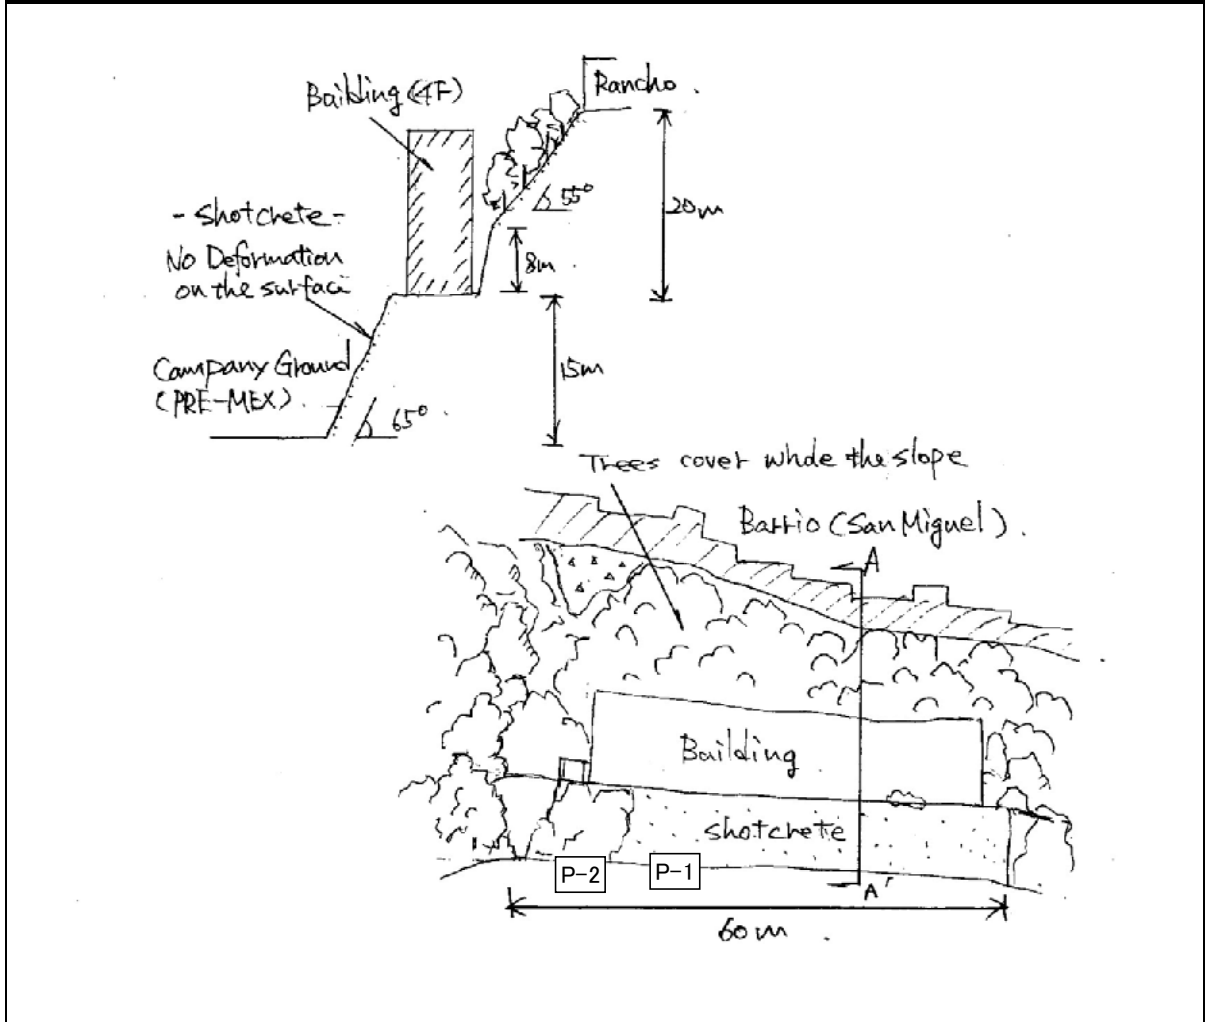 Rancho.
Bailding (4F)
55°
20m
- shotcrete -
No Deformation
on the surfaci
8m
Company Ground
(PRE-MEX).
15m
65°
Trees cover whole the slope
Barrio (San Miguel).
A
Bailding
shotcrete
P-2
P-1
A'
60m